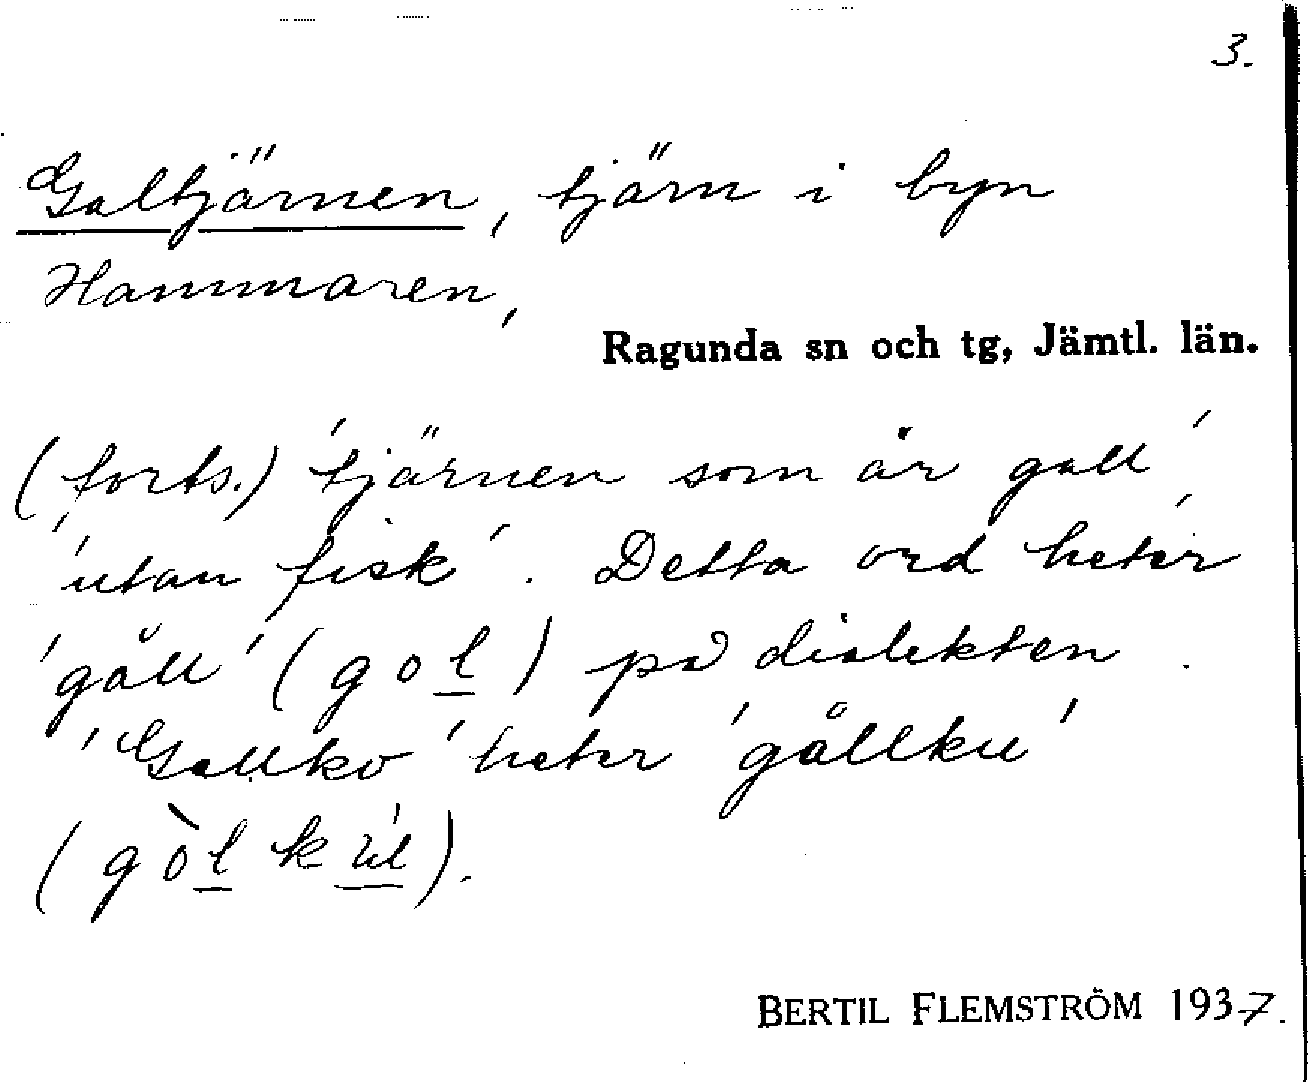 3.
Galtjärnen, tjärn i byn
Hammaren,
Ragunda sn och tg, Jämtl. län.
(forts.) 'tjärnen som är gall',
'utan fisk'. Detta ord heter
'gåll' (gol) på dialekten.
'Gallko' heter 'gållku'
(gòlk
BERTIL FLEMSTRÖM 1937.